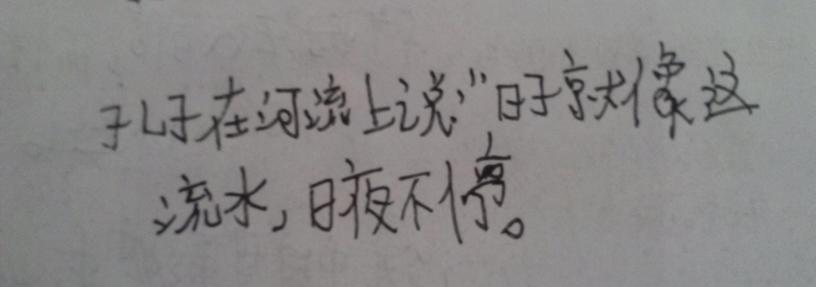 孔子在河流上说:"时于就像这
流水,日夜不停。